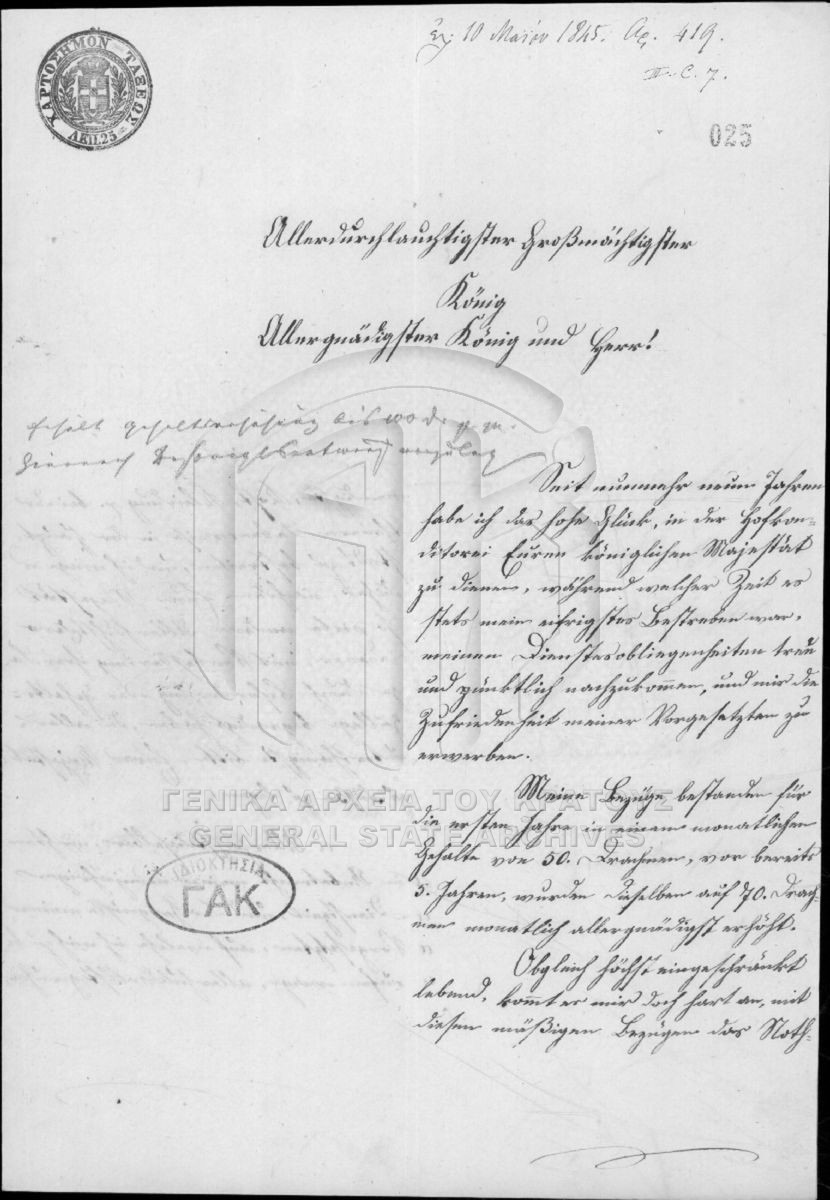 Ελ: 10 Μαΐου 1845. Αρ. 419.
II. C. 7.
ΧΑΡΤΟΣΗΜΟΝ ΤΑΞΕΩΣ
ΛΕΠ. 25
025
Allerdurchlauchtigster Großmächtigster
König
Allergnädigster König und Herr!
erhält bis 100 dr
hiernach
Seit nunmehr neun Jahren
habe ich das hohe Glück, in der Hofkon-
ditorei Eurer königlichen Majestät
zu dienen, während welcher Zeit es
stets mein eifrigstes Bestreben war,
meinen Dienstesobliegenheiten treu
und pünktlich nachzukommen, und mir die
Zufriedenheit meiner Vorgesetzten zu
erwerben.
Meine Bezüge bestanden für
die ersten Jahre in einem monatlichen
Gehalte von 50. Drachmen, vor bereits
5. Jahren, wurden dieselben auf 70. Drach-
men monatlich allergnädigst erhöht.
Obgleich höchst eingeschränkt
lebend, kommt es mir doch hart an, mit
diesen mäßigen Bezügen das Noth-
ΓΕΝΙΚΑ ΑΡΧΕΙΑ ΤΟΥ ΚΡΑΤΟΥΣ
GENERAL STATE ARCHIVES
ΙΔΙΟΚΤΗΣΙΑ
ΓΑΚ